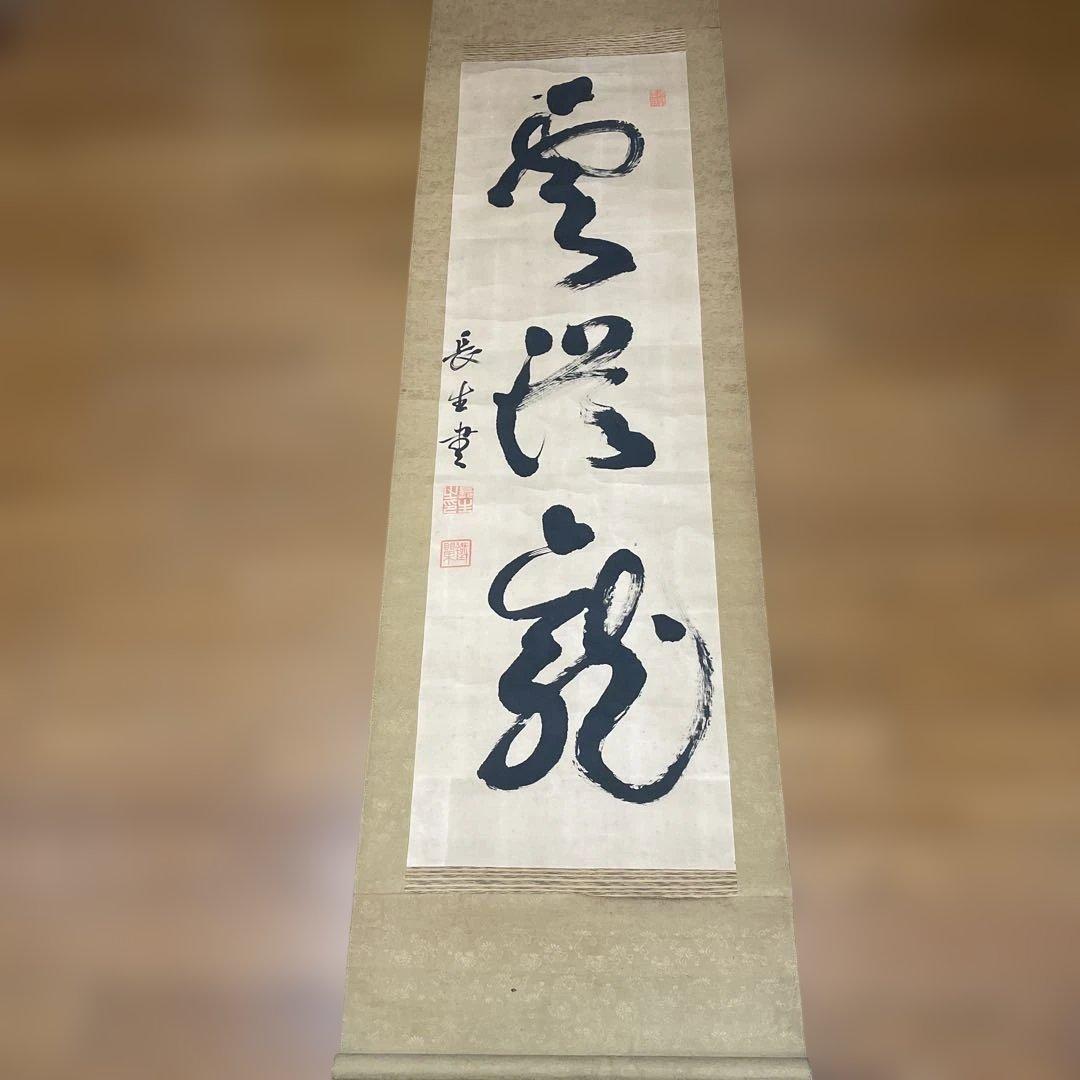 雲從龍
長生書